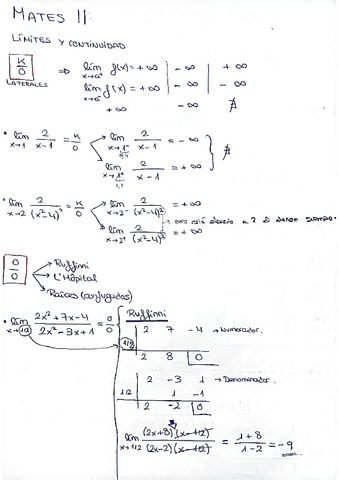 MATES II
LÍMITES Y CONTINUIDAD
K/0 LATERALES ⇒ lim x→a⁻ f(x) = +∞ | -∞ | +∞
lim x→a⁺ f(x) = +∞ | -∞ | -∞
+∞ -∞ ∄
• lim x→1 2/(x-1) = K/0 → lim x→1⁻ 2/(x-1) = -∞
0,9
→ lim x→1⁺ 2/(x-1) = +∞ } ∄
1,1
• lim x→2 2/(x²-4)² = K/0 → lim x→2⁻ 2/(x²-4)² = +∞
→ como está elevado a 2 siempre.
→ lim x→2⁺ 2/(x²-4)² = +∞
0/0 → Ruffini
→ L'Hôpital
→ Raíces (conjugadas)
• lim x→1/2 (2x²+7x-4)/(2x²-3x+1) = 0/0
Ruffini
2 7 -4 → Numerador.
1/2
2 8 0
2 -3 1 → Denominador.
1/2 1 -1
2 -2 0
lim x→1/2 (2x+8)(x-1/2)/(2x-2)(x-1/2) = (1+8)/(1-2) = -9